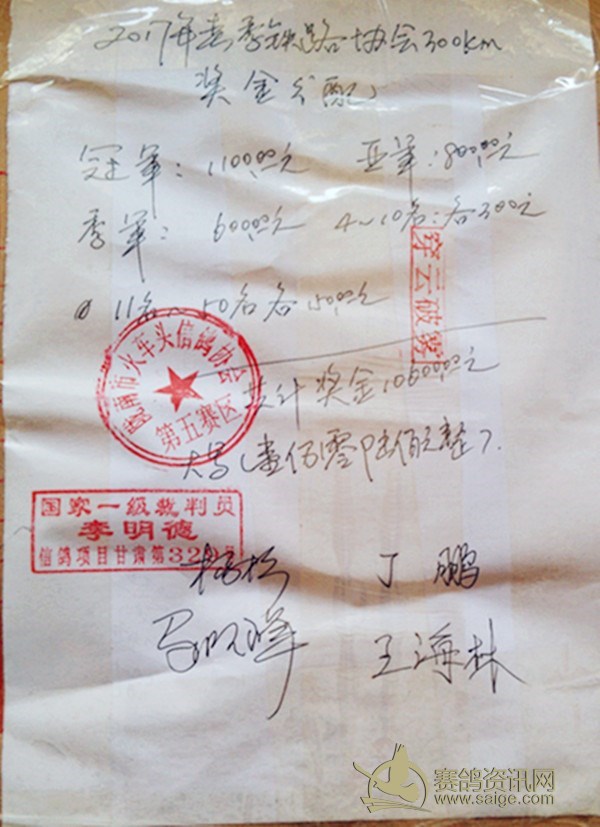 2017年春季铁路协会300km
奖金分配
冠军：1100.00元 亚军：800.00元
季军：600.00元 4~10名：各300元
11名~50名各150.00元
穿云破雾
陇南市火车头信鸽协会
第五赛区
共计奖金10600.00元
大写（壹万零陆佰元整）
国家一级裁判员
李明德
信鸽项目甘肃第329号
杨松 丁鹏
王海林
赛鸽资讯网
www.saige.com